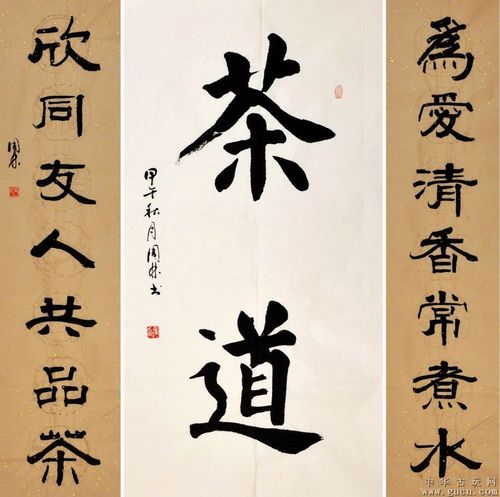 為愛清香常煮水
茶道
甲午秋月周林书
欣同友人共品茶
周林
中华古玩网
www.gucn.com